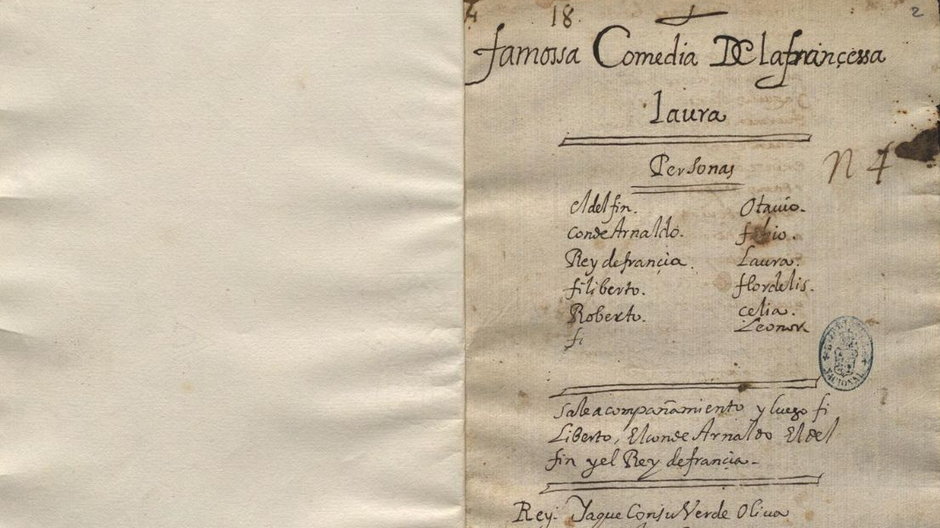 18.
2
famossa Comedia De la françessa
Laura
Personas
el delfin.
Conde Arnaldo.
Rey de françia.
filiberto.
Roberto.
fi
Otauio.
fabio.
Laura.
flordelis.
celia.
Leonor
N 4
Sale acompañamiento y luego fi
Liberto, El conde Arnaldo El del
fin y el Rey de françia.
Rey: Ya que Con su Verde Oliua